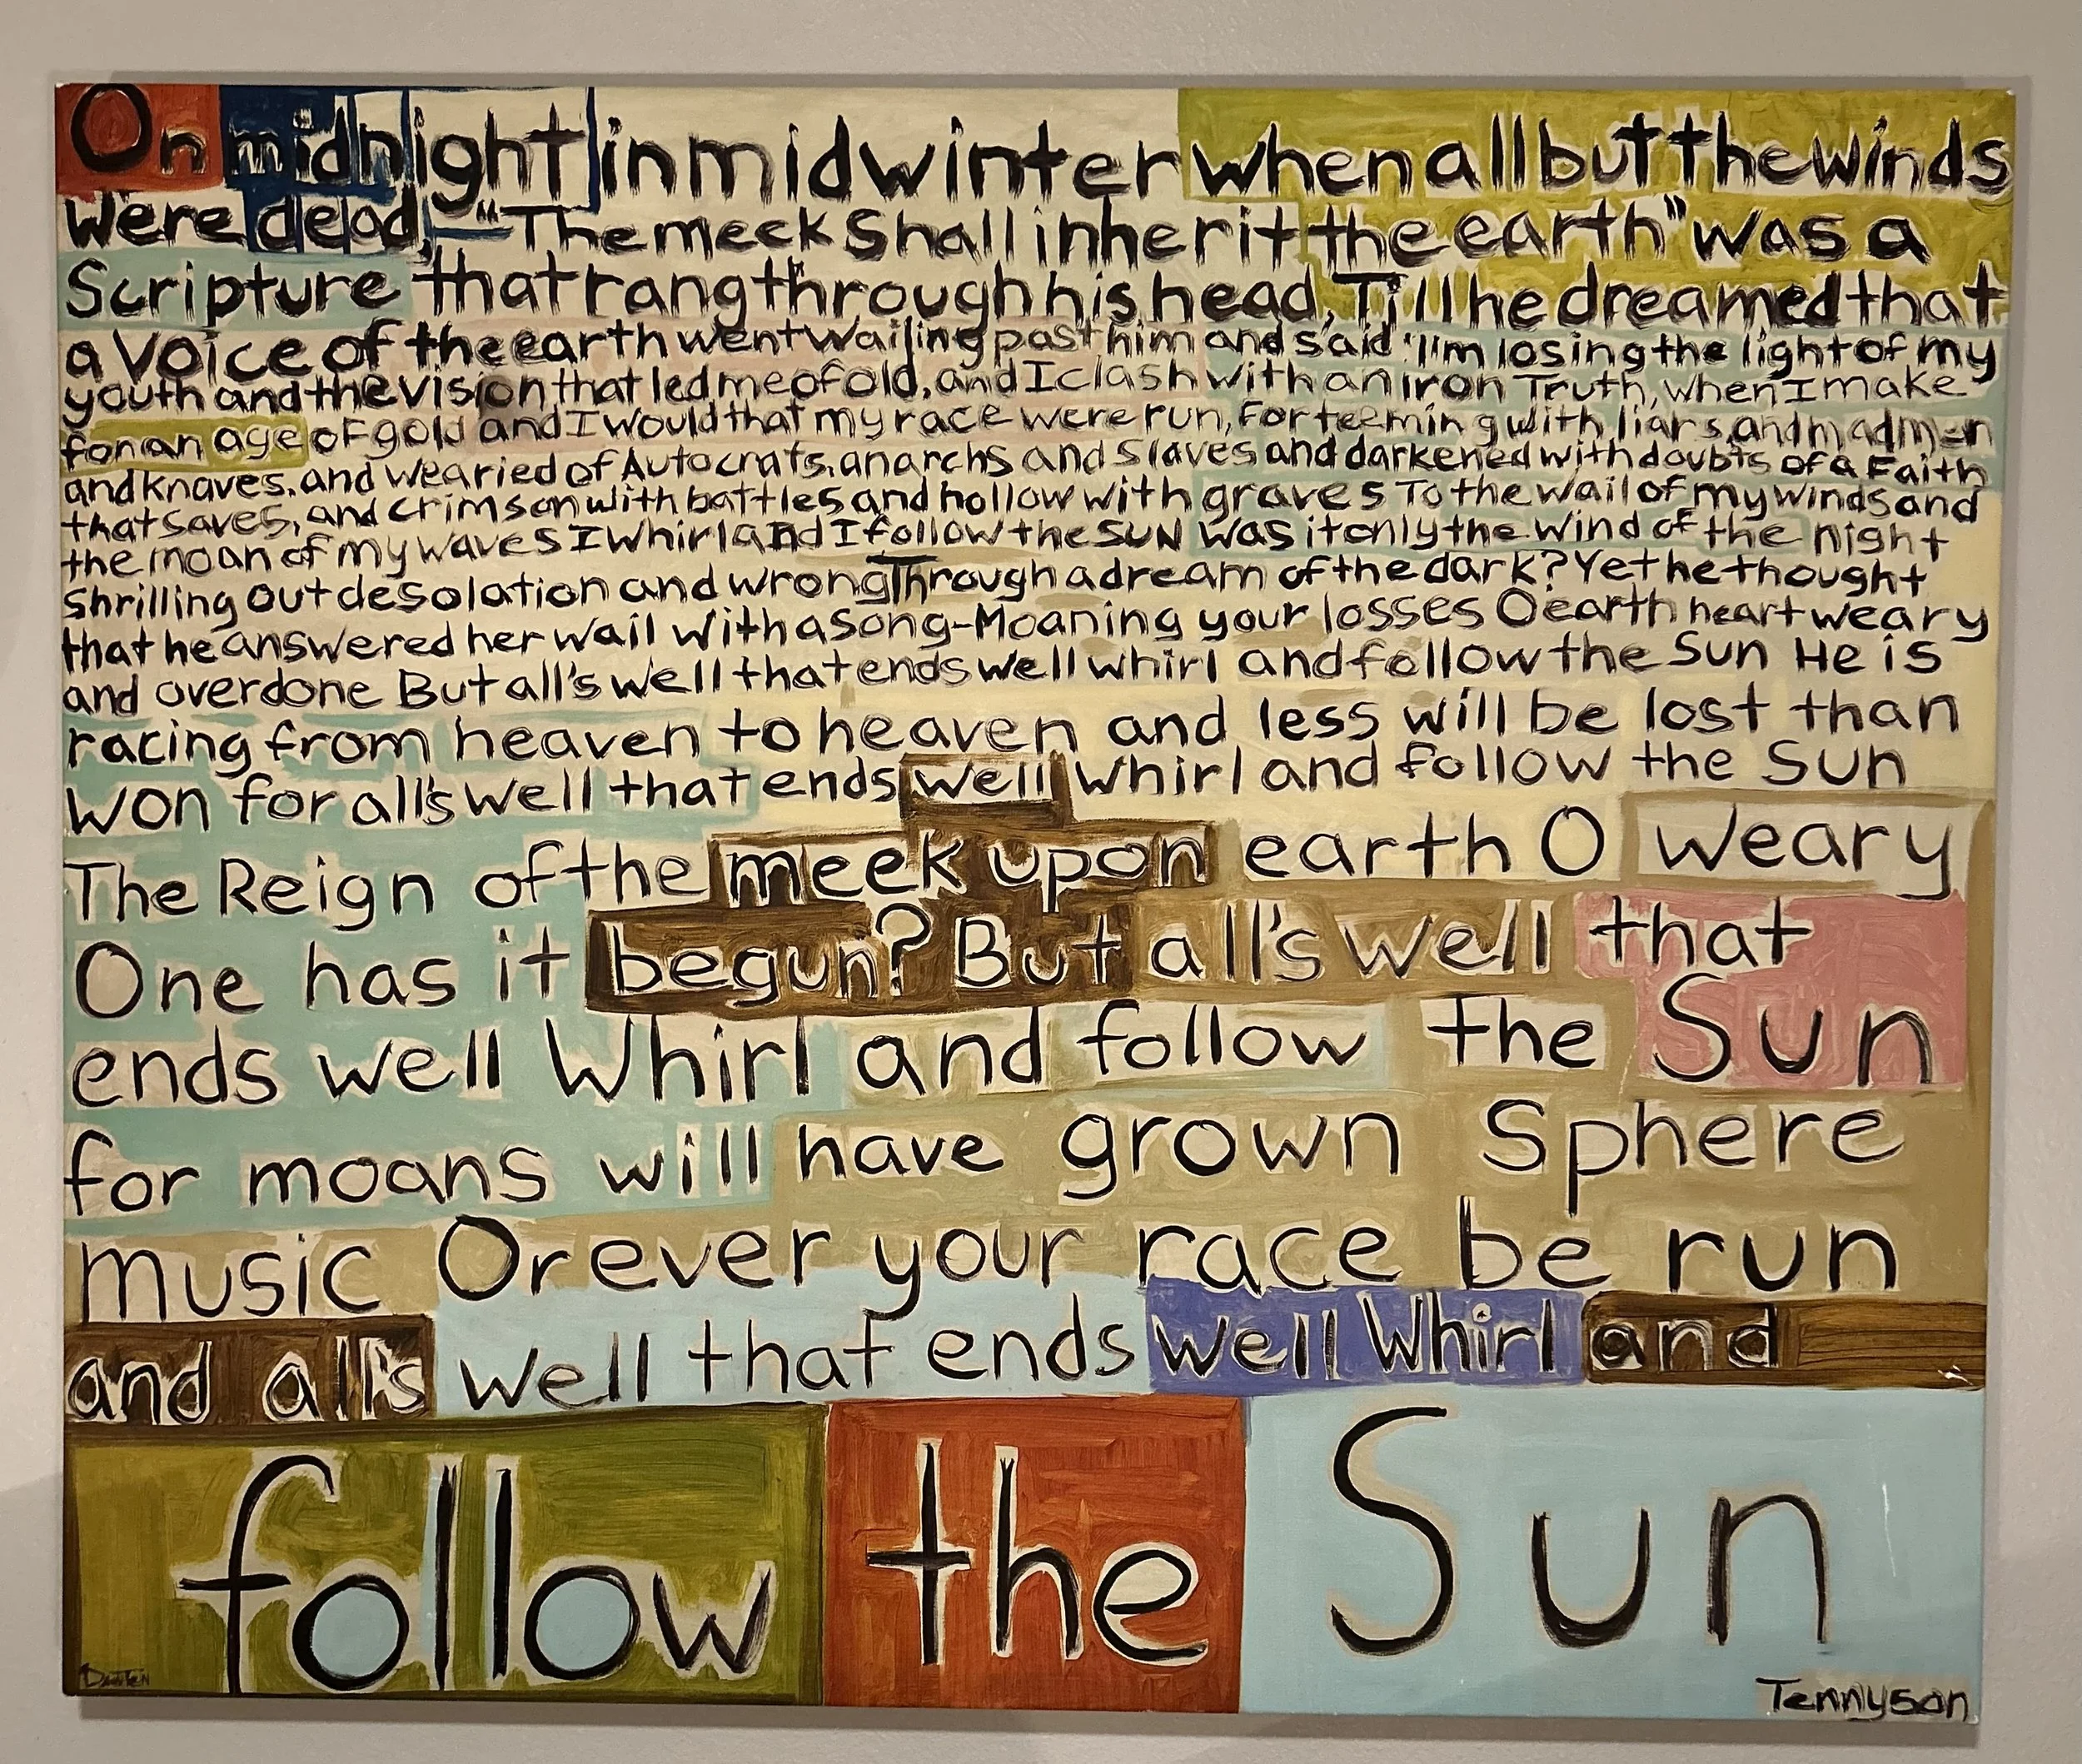 On midnight in midwinter when all but the winds
were dead, "The meek Shall inherit the earth" was a
Scripture that rang through his head, Till he dreamed that
a Voice of the earth went Wailing past him and said: "I'm losing the light of my
youth and the vision that led me of old, and I clash with an iron Truth, when I make
for an age of gold and I would that my race were run, For teeming with liars, and madmen
and knaves. and wearied of Autocrats, anarchs and Slaves and darkened with doubts of a Faith
that saves, and crimson with battles and hollow with graves To the wail of my winds and
the moan of my waves I Whirl and I follow the SUN Was it only the wind of the night
shrilling out desolation and wrong Through a dream of the dark? Yet he thought
that he answered her wail with a song-Moaning your losses O earth heart weary
and overdone But all's well that ends well whirl and follow the Sun He is
racing from heaven to heaven and less will be lost than
won for all's well that ends well whirl and follow the Sun
The Reign of the meek upon earth O weary
One has it begun? But all's well that
ends well Whirl and follow the Sun
for moans will have grown Sphere
music Or ever your race be run
and all's well that ends well Whirl and
follow the Sun
Tennyson